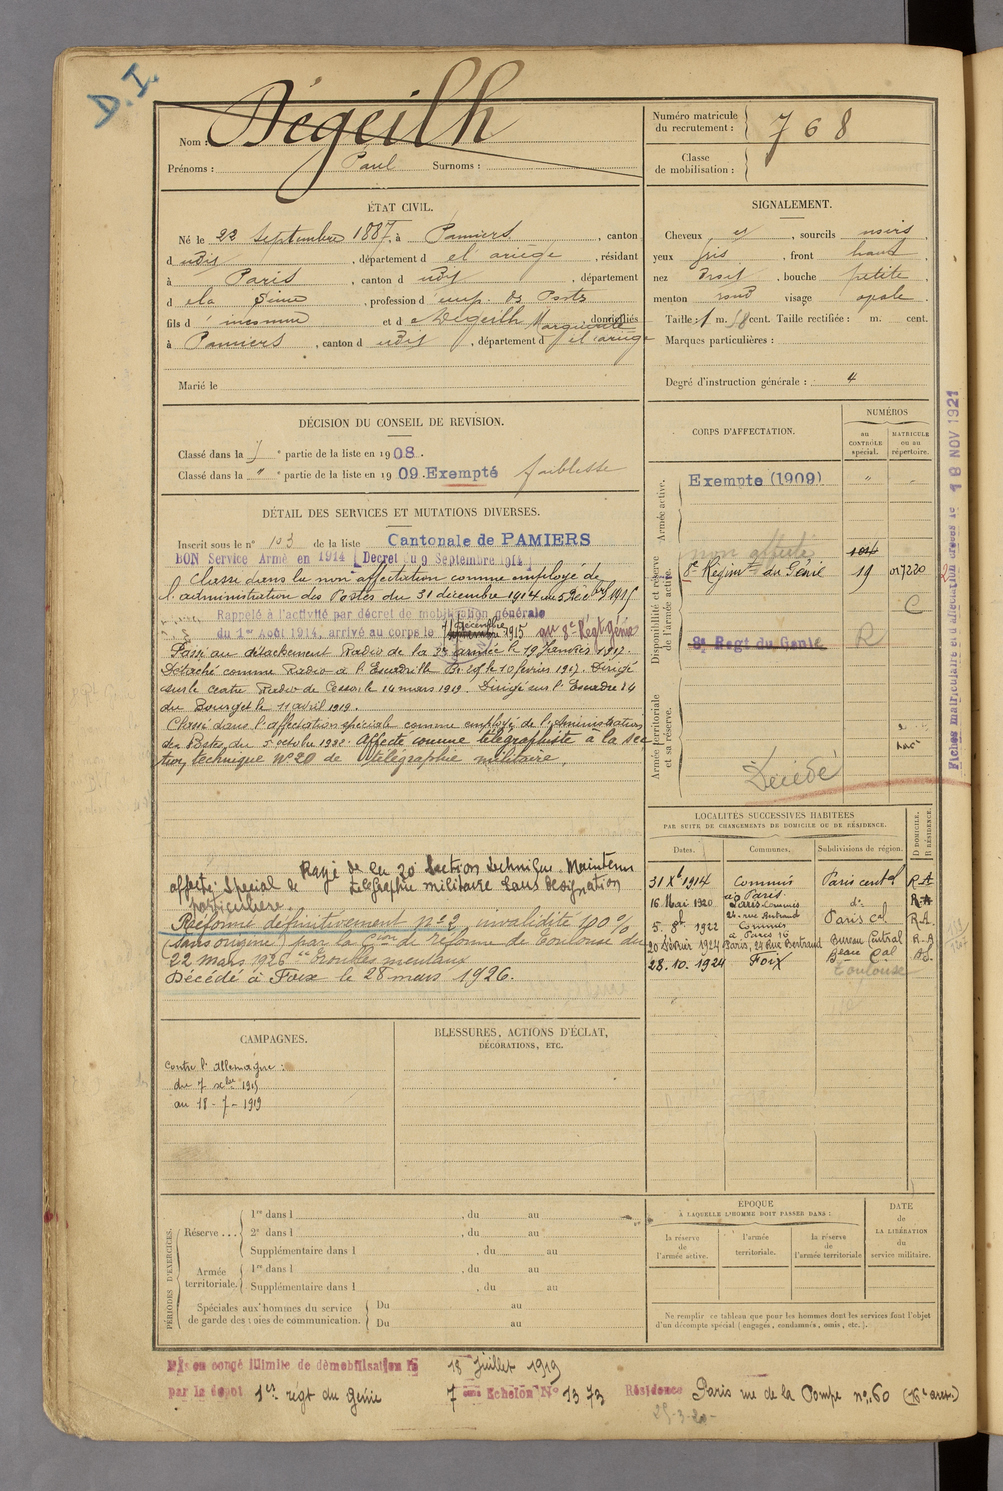 D.I.
Nom : Dégeilh
Prénoms : Paul Surnoms :
Numéro matricule
du recrutement : 768
Classe
de mobilisation :
ÉTAT CIVIL.
Né le 22 Septembre 1887, à Pamiers, canton
d udit, département d el'ariège, résidant
à Paris, canton d udit, département
d ela Seine, profession d emp. des Postes
fils d' inconnu et d e Dégeilh Marguerite, domiciliés
à Pamiers, canton d udit, département d el'ariège
Marié le
SIGNALEMENT.
Cheveux et, sourcils noirs,
yeux gris, front haut,
nez droit, bouche petite,
menton rond visage ovale.
Taille : 1 m. 58 cent. Taille rectifiée : m. cent.
Marques particulières :
Degré d'instruction générale : 4
DÉCISION DU CONSEIL DE REVISION.
Classé dans la e partie de la liste en 1908.
Classé dans la " e partie de la liste en 1909. Exempté faiblesse
DÉTAIL DES SERVICES ET MUTATIONS DIVERSES.
Inscrit sous le n° 103 de la liste Cantonale de PAMIERS
BON Service Armé en 1914 [Décret du 9 Septembre 1914]
Classé dans la non affectation comme employé de
l'administration des Postes du 31 décembre 1914 au 5 Décbre 1915
Rappelé à l'activité par décret de mobilisation générale
du 1er Août 1914, arrivé au corps le 7 Décembre 1915 au 8e Régt Génie
Passé au détachement Radio de la 2e armée le 19 Janvier 1917.
Détaché comme Radio à l'Escadrille le 10 février 1917. Dirigé
sur le centre Radio de le 14 mars 1919. Dirigé sur l'Escadre 14
du Bourget le 11 avril 1919.
Classé dans l'affectation spéciale comme employé de l'Administration
des Postes, du 5 octobre 1922. Affecté comme télégraphiste à la sec
tion technique N° 20 de télégraphie militaire.
Rayé de la 20 Section technique. Maintenu
affecté Spécial de télégraphie militaire sans désignation
particulière.
Réformé définitivement n° 2 invalidité 100 %
(sans origine) par la Cion de réforme de Toulouse du
22 mars 1926 "troubles mentaux
Décédé à Foix le 28 mars 1926.
CORPS D'AFFECTATION.
NUMÉROS
au
CONTRÔLE
spécial.
MATRICULE
ou au
répertoire.
Armée active.
Exempté (1909) " "
Disponibilité et réserve
de l'armée active.
non affecté
8e Régimt du Génie 19 017220
C
8e Regt du Genie R
Armée territoriale
et sa réserve.
Décédé
Fiches matriculaire et d'affectation créées le 18 NOV 1921
LOCALITÉS SUCCESSIVES HABITÉES
PAR SUITE DE CHANGEMENTS DE DOMICILE OU DE RÉSIDENCE.
D DOMICILE.
R RÉSIDENCE.
Dates. Communes. Subdivisions de région.
31 Xb 1914 Commis à Paris Paris central R-A
16 Mai 1920 Paris Commis 24 rue Bertrand do R-A
5. 8b 1922 Commis à Paris 16 Paris Cal R-A
20 1924 Paris, 24 Rue Bertrand Bureau Central R-A
28.10.1924 Foix Toulouse
CAMPAGNES.
contre l'allemagne :
du 7 xbre 1915
au 18-7-1919
BLESSURES, ACTIONS D'ÉCLAT,
DÉCORATIONS, ETC.
PÉRIODES D'EXERCICES.
Réserve ...
1re dans l , du au
2e dans l , du au
Supplémentaire dans l , du au
Armée
territoriale.
1re dans l , du au
Supplémentaire dans l , du au
Spéciales aux hommes du service
de garde des voies de communication.
Du au
Du au
ÉPOQUE
À LAQUELLE L'HOMME DOIT PASSER DANS :
la réserve
de
l'armée active.
l'armée
territoriale.
la réserve
de
l'armée territoriale
DATE
de
LA LIBÉRATION
du
service militaire.
Ne remplir ce tableau que pour les hommes dont les services font l'objet
d'un décompte spécial (engagés, condamnés, omis, etc.).
Mis en congé illimité de démobilisation le 18 Juillet 1919
par le dépôt 1er régt du Génie 7 eme Echelon N° 1373 Résidence Paris rue de la Pompe n° 60 (16e arrt.)
25-3-20-